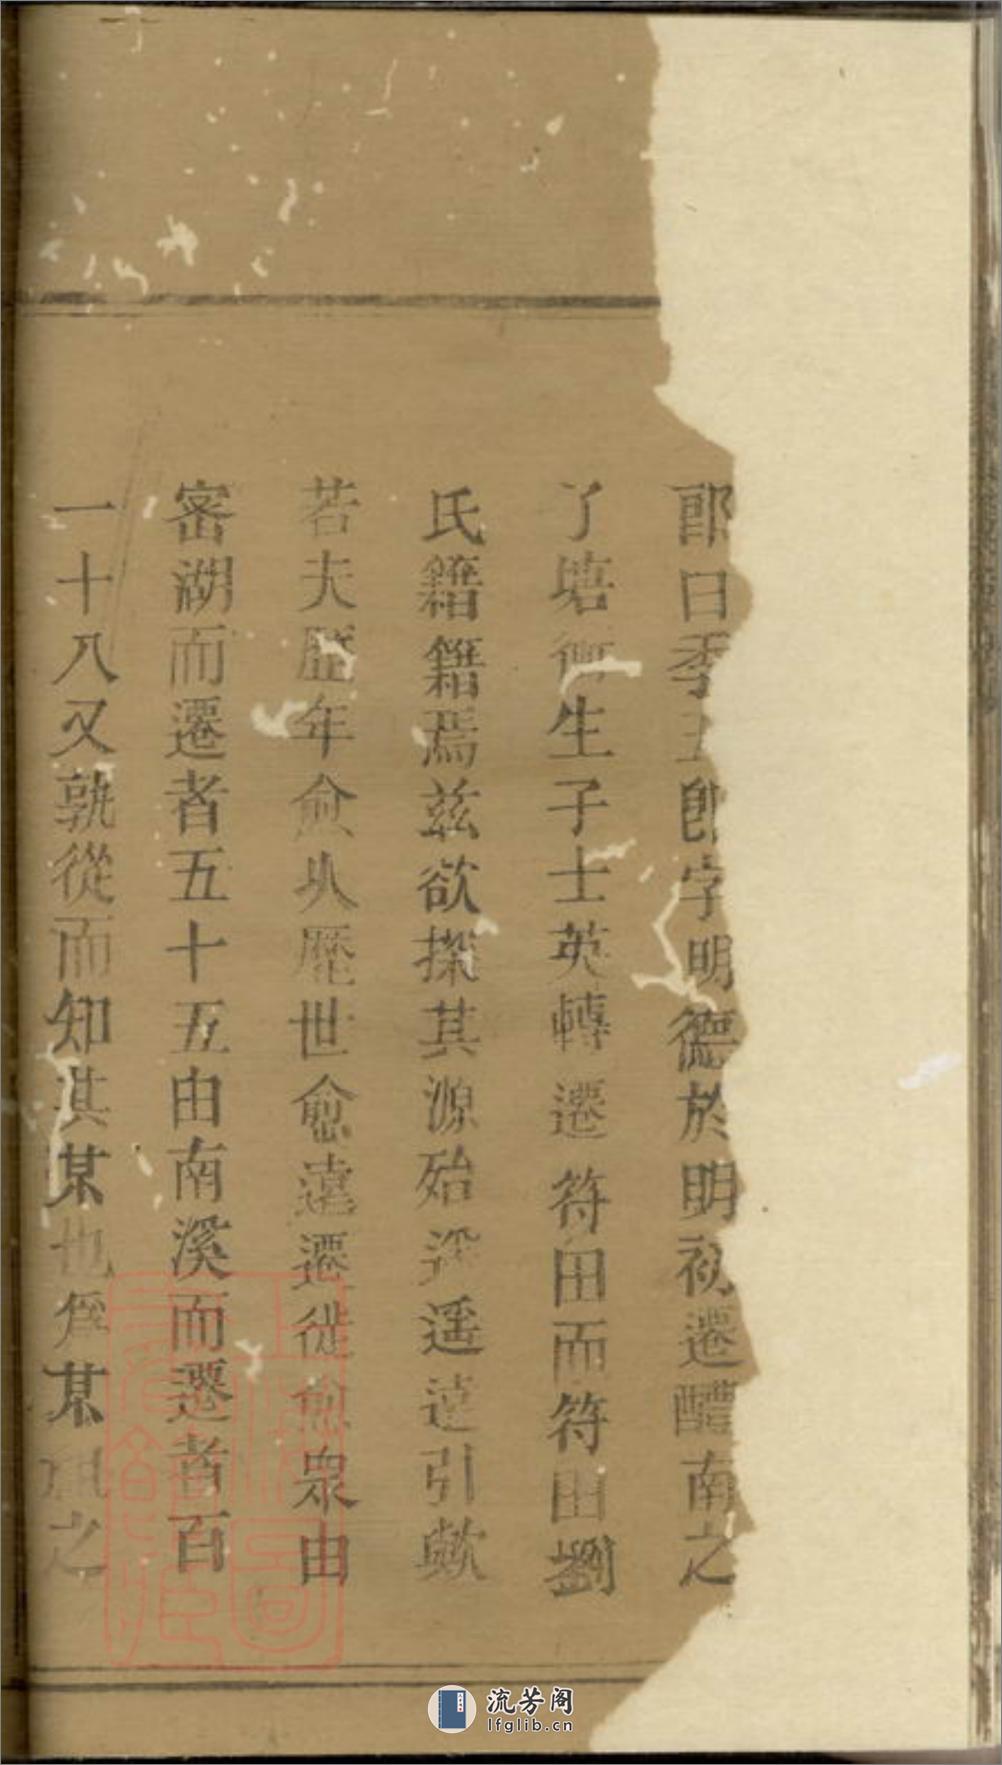 郎曰季五郎字明德於明初遷醴南之
了塘衡生子士英轉遷符田而符田劉
氏籍籍焉茲欲探其源殆遥遠引歟
若夫歷年愈乆歷世愈遠遷徙愈衆由
密湖而遷者五十五由南溪而遷者百
一十八又孰從而知其某也爲某祖之
上海圖書館藏
流芳阁
lfglib.cn